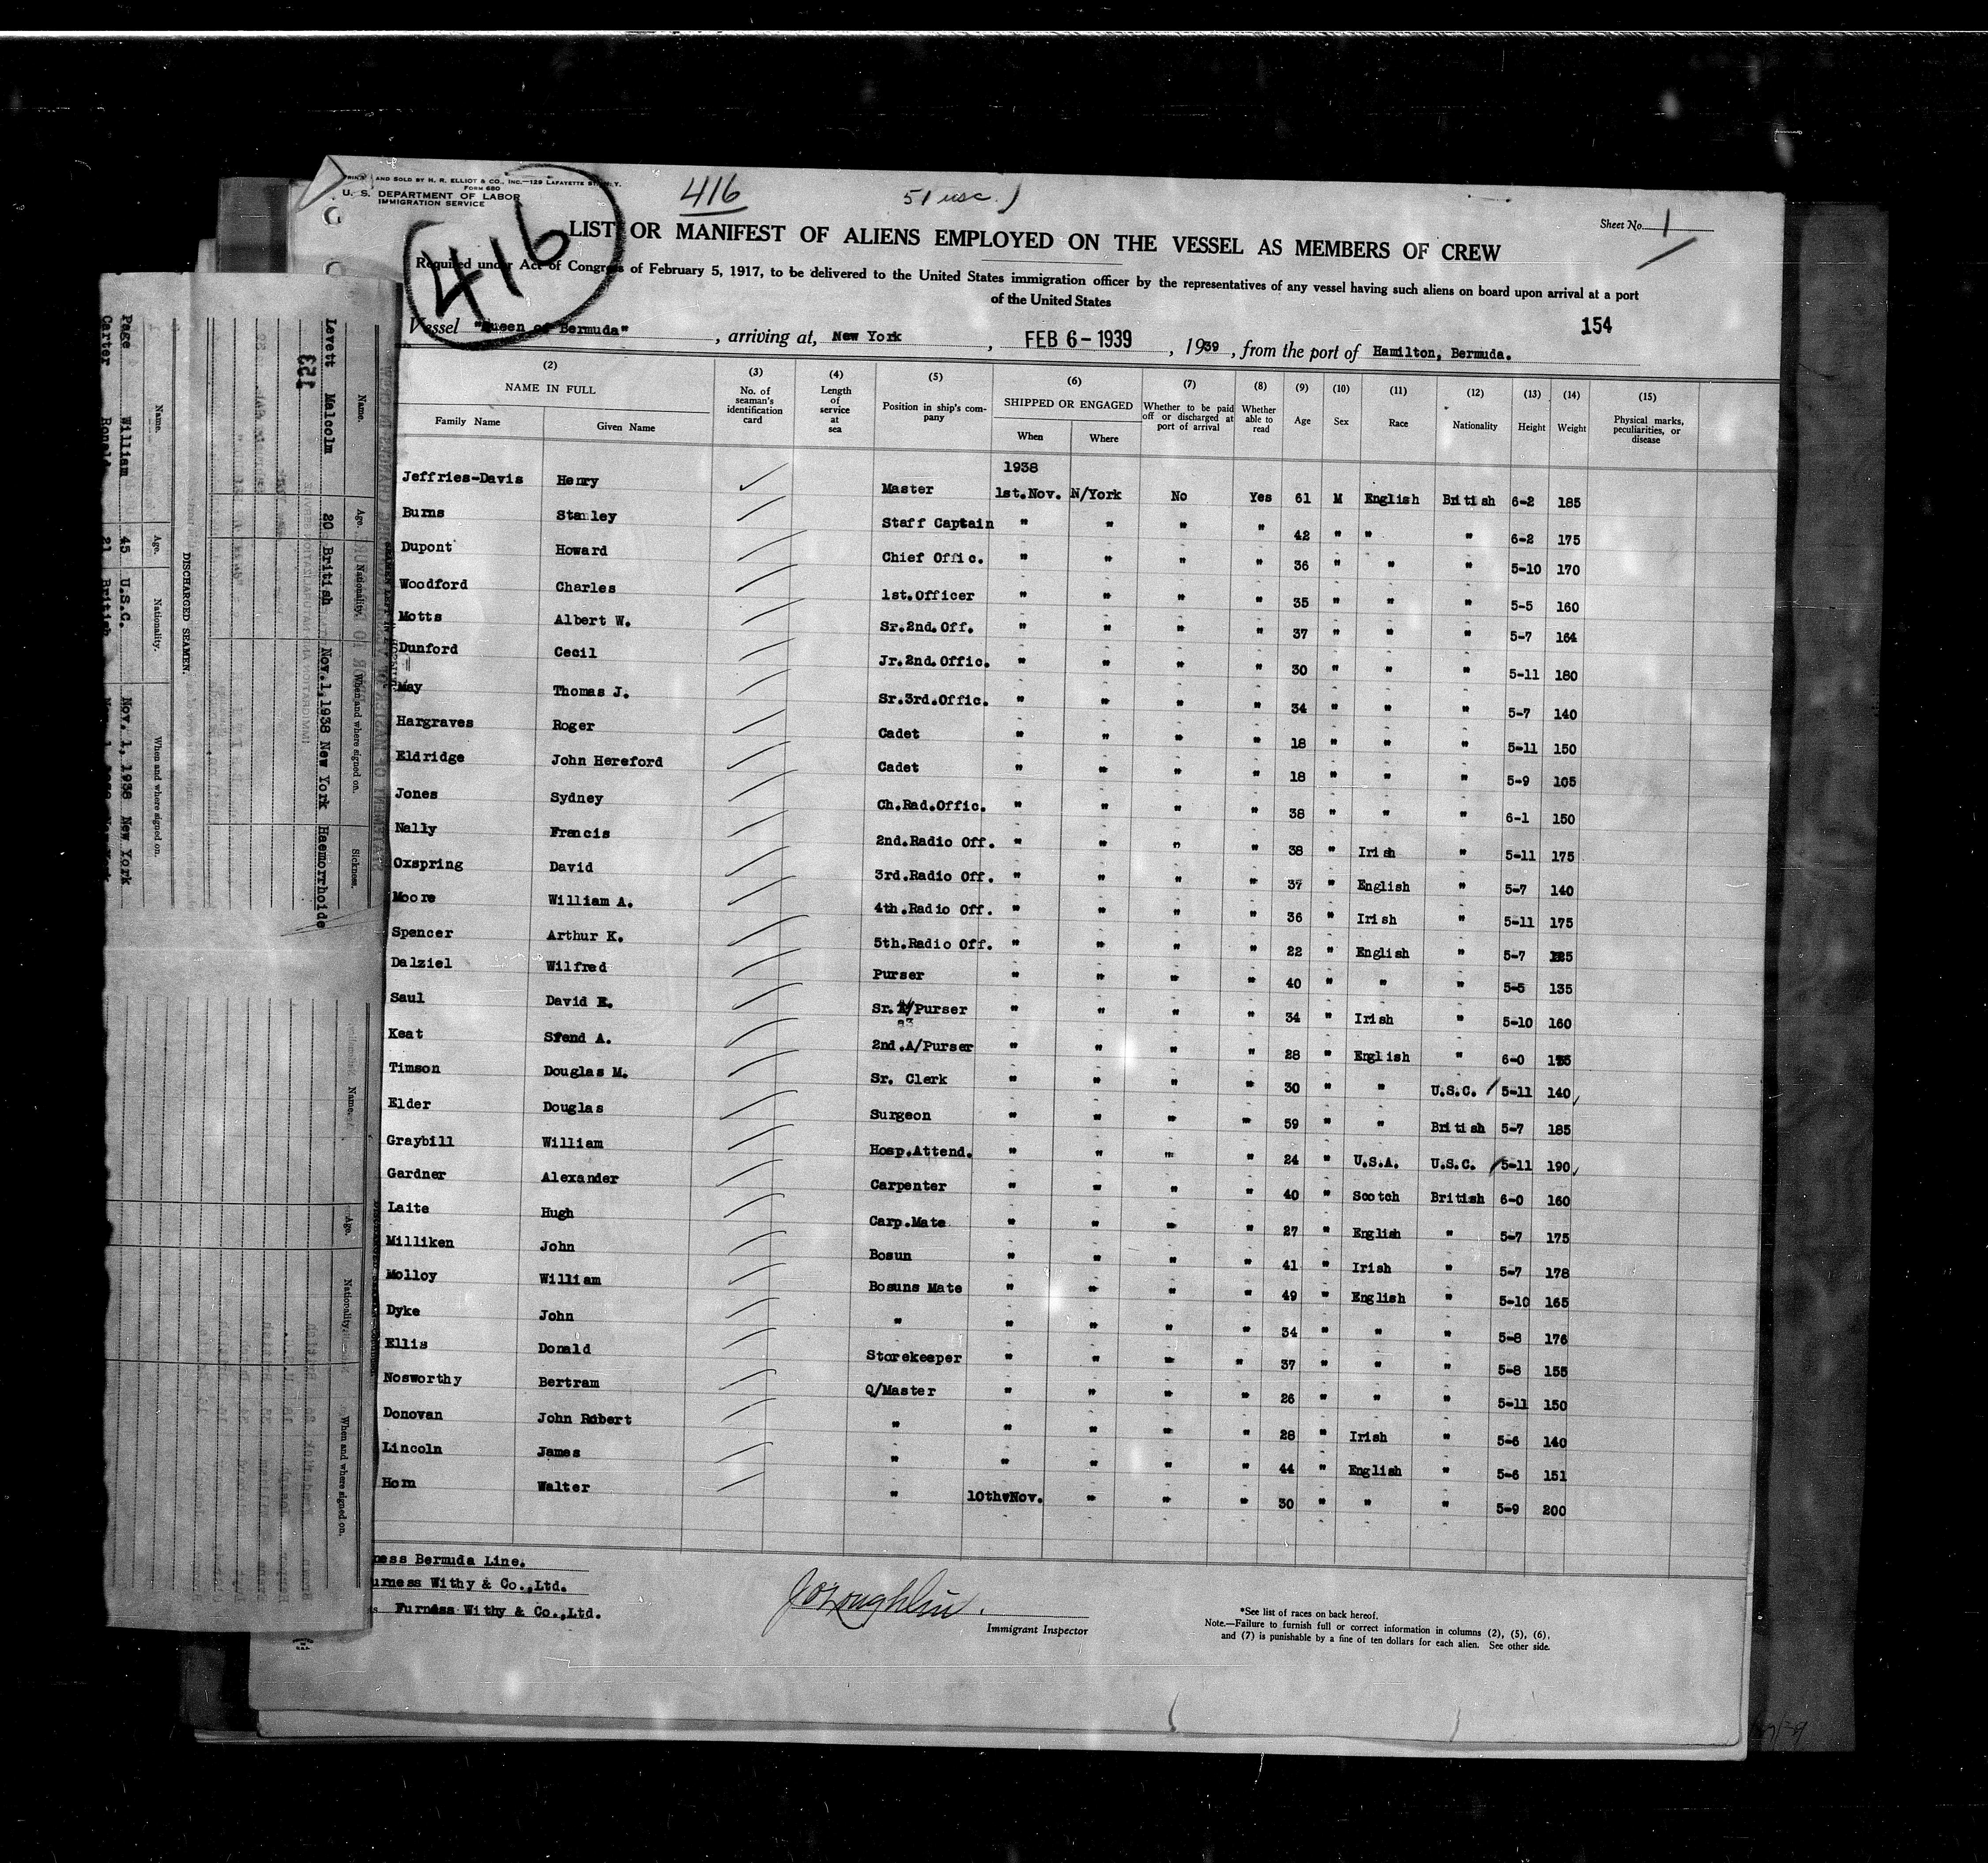 AND SOLD BY H. R. ELLIOT & CO., INC.—129 LAFAYETTE ST., N.Y.
FORM 680
U. S. DEPARTMENT OF LABOR
IMMIGRATION SERVICE
416
416
51 usc.)
Sheet No. 1
LIST OR MANIFEST OF ALIENS EMPLOYED ON THE VESSEL AS MEMBERS OF CREW
Required under Act of Congress of February 5, 1917, to be delivered to the United States immigration officer by the representatives of any vessel having such aliens on board upon arrival at a port
of the United States
154
Vessel "Queen of Bermuda", arriving at, New York, FEB 6-1939, 1939, from the port of Hamilton, Bermuda.
(2) (3) (4) (5) (6) (7) (8) (9) (10) (11) (12) (13) (14) (15)
NAME IN FULL No. of seaman's identification card Length of service at sea Position in ship's company SHIPPED OR ENGAGED Whether to be paid off or discharged at port of arrival Whether able to read Age Sex Race Nationality Height Weight Physical marks, peculiarities, or disease
Family Name Given Name When Where
1938
Jeffries-Davis Henry Master 1st.Nov. N/York No Yes 61 M English British 6-2 185
Burns Stanley Staff Captain " " " " 42 " " " 6-2 175
Dupont Howard Chief Offic. " " " " 36 " " " 5-10 170
Woodford Charles 1st.Officer " " " " 35 " " " 5-5 160
Motts Albert W. Sr.2nd.Off. " " " " 37 " " " 5-7 164
Dunford Cecil Jr.2nd.Offic. " " " " 30 " " " 5-11 180
May Thomas J. Sr.3rd.Offic. " " " " 34 " " " 5-7 140
Hargraves Roger Cadet " " " " 18 " " " 5-11 150
Eldridge John Hereford Cadet " " " " 18 " " " 5-9 105
Jones Sydney Ch.Rad.Offic. " " " " 38 " " " 6-1 150
Nally Francis 2nd.Radio Off. " " " " 38 " Irish " 5-11 175
Oxspring David 3rd.Radio Off. " " " " 37 " English " 5-7 140
Moore William A. 4th.Radio Off. " " " " 36 " Irish " 5-11 175
Spencer Arthur K. 5th.Radio Off. " " " " 22 " English " 5-7
Dalziel Wilfred Purser " " " " 40 " " " 5-5 135
Saul David E. Sr. /Purser " " " " 34 " Irish " 5-10 160
Keat Svend A. 2nd.A/Purser " " " " 28 " English " 6-0
Timson Douglas M. Sr. Clerk " " " " 30 " " U.S.C. 5-11 140
Elder Douglas Surgeon " " " " 59 " " British 5-7 185
Graybill William Hosp.Attend. " " " " 24 " U.S.A. U.S.C. 5-11 190
Gardner Alexander Carpenter " " " " 40 " Scotch British 6-0 160
Laite Hugh Carp.Mate " " " " 27 " English " 5-7 175
Milliken John Bosun " " " " 41 " Irish " 5-7 178
Molloy William Bosuns Mate " " " " 49 " English " 5-10 165
Dyke John " " " " " 34 " " " 5-8 176
Ellis Donald Storekeeper " " " " 37 " " " 5-8 155
Nosworthy Bertram Q/Master " " " " 26 " " " 5-11 150
Donovan John Robert " " " " " 28 " Irish " 5-6 140
Lincoln James " " " " " 44 " English " 5-6 151
Horn Walter " 10th Nov. " " " 30 " " " 5-9 200
ness Bermuda Line.
urness Withy & Co.,Ltd.
Furness Withy & Co.,Ltd.
J O'Loughlin.
Immigrant Inspector
*See list of races on back hereof.
Note.—Failure to furnish full or correct information in columns (2), (5), (6),
and (7) is punishable by a fine of ten dollars for each alien. See other side.
153
Name. Age. Nationality. When and where signed on. Sickness.
Levett Malcolm 20 British Nov.1,1938 New York Haemorrhoids
DISCHARGED SEAMEN.
Name. Age. Nationality. When and where signed on.
Page William 45 U.S.C. Nov. 1, 1938 New York
Carter Ronald 21 British
Name. Age. Nationality. When and where signed on.